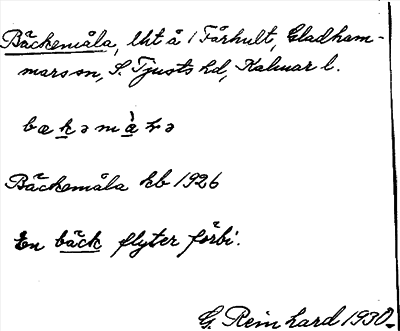 Bäckemåla, lht å 1 Fårhult, Gladham-
mars sn, S. Tjusts hd, Kalmar l.
bækəmàɫə
Bäckemåla kb 1926
En bäck flyter förbi.
G. Reinhard 1930.